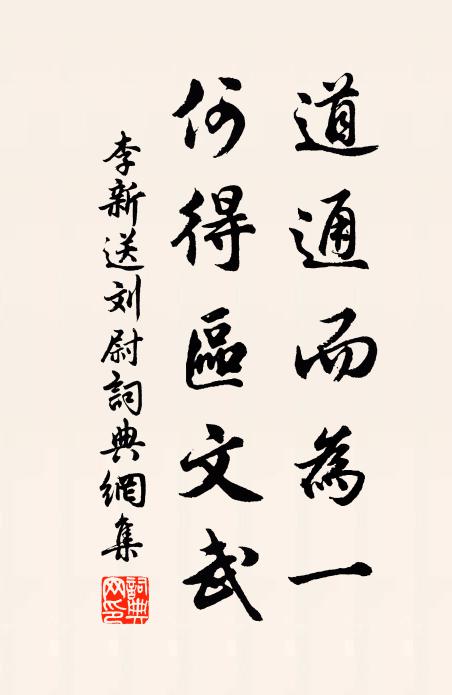 道通而為一
何得區文武
李新送刘尉詞典網集
詞典網印